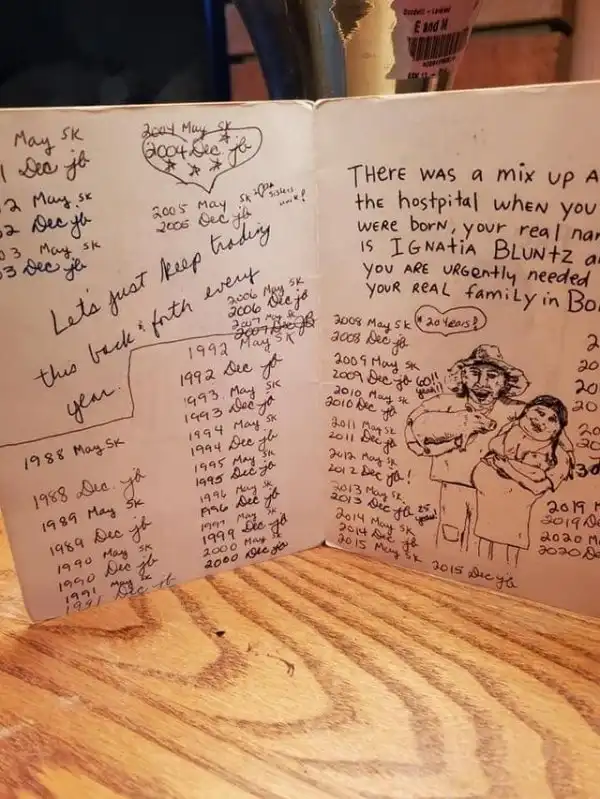 E and M
May SK
1 Dec jb
02 May SK
02 Dec jb
03 May SK
03 Dec jb
2004 May SK
2004 Dec jb
2005 May SK
2005 Dec jb
sisters
Let's just keep trading
this back & forth every
year.
2006 May SK
2006 Dec jb
2007 May SK
2007 Dec jb
1988 May SK
1988 Dec. jb
1989 May SK
1989 Dec jb
1990 May SK
1990 Dec jb
1991 May SK
1991 Dec jb
1992 May SK
1992 Dec jb
1993 May SK
1993 Dec jb
1994 May SK
1994 Dec jb
1995 May SK
1995 Dec jb
1996 May SK
1996 Dec jb
1999 May SK
1999 Dec jb
2000 May SK
2000 Dec jb
THERE WAS A MIX UP A
the hostpital when you
WERE born, your real nam
is IGNatia BLUNtZ a
you are urgently needed
YOUR REAL family in Bo
2008 May SK
2008 Dec jb
20 Years!
2009 May SK
2009 Dec jb
2010 May SK
2010 Dec jb
2011 May SK
2011 Dec jb
2012 May SK
2012 Dec jb!
2013 May SK
2013 Dec jb
25 years!
2014 May SK
2014 Dec jb
2015 May SK
2015 Dec jb
20
20
20
20
2019 M
2019 De
2020 Ma
2020 Dec